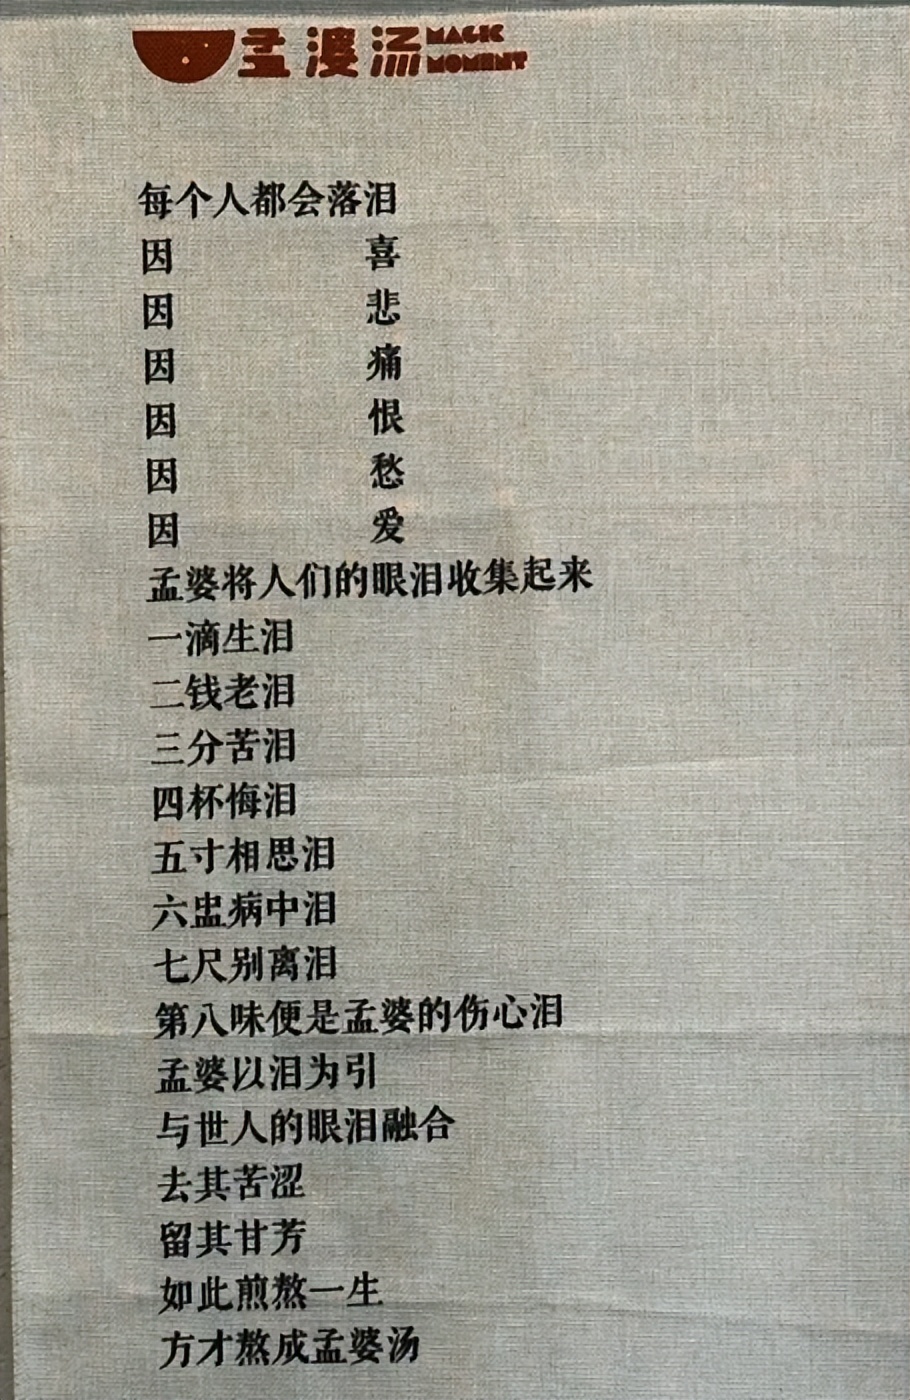 孟婆汤 MAGIC MOMENT
每个人都会落泪
因 喜
因 悲
因 痛
因 恨
因 愁
因 爱
孟婆将人们的眼泪收集起来
一滴生泪
二钱老泪
三分苦泪
四杯悔泪
五寸相思泪
六盅病中泪
七尺别离泪
第八味便是孟婆的伤心泪
孟婆以泪为引
与世人的眼泪融合
去其苦涩
留其甘芳
如此煎熬一生
方才熬成孟婆汤